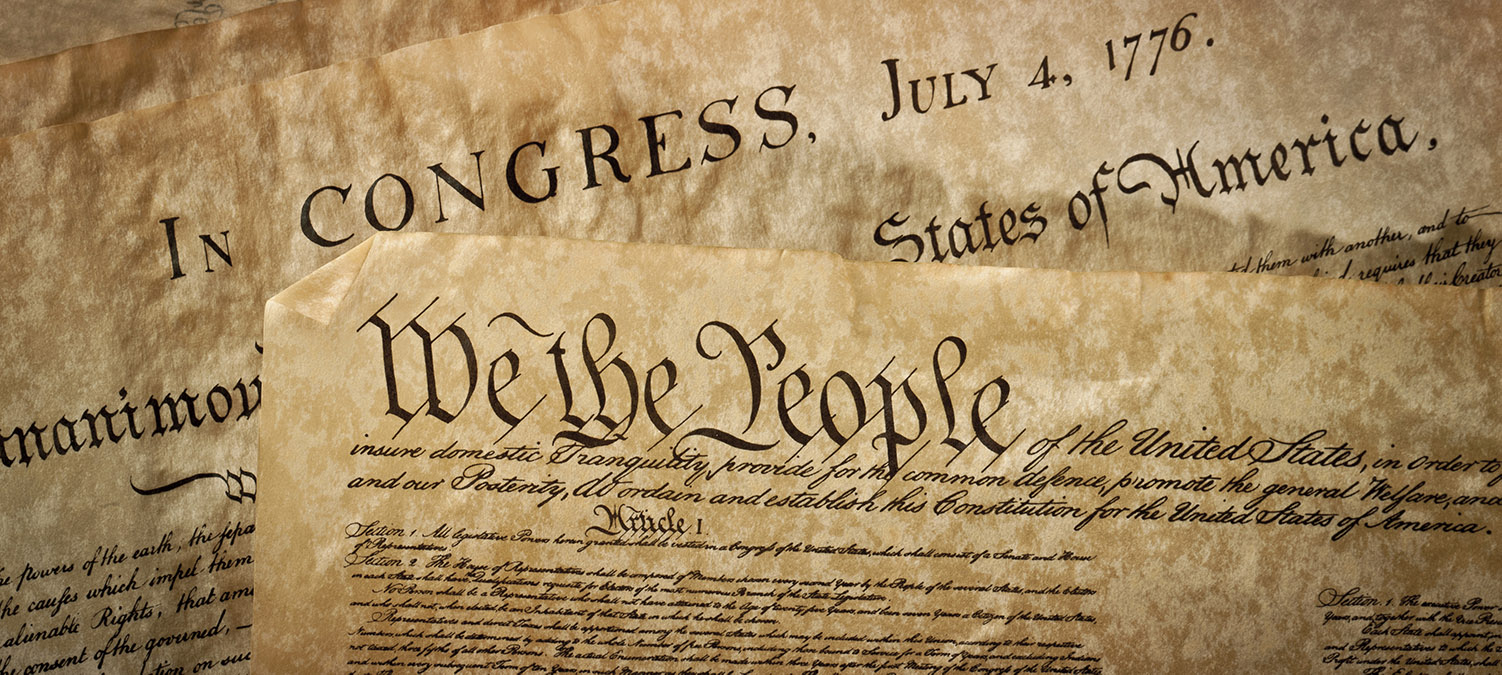 In CONGRESS, July 4, 1776.
States of America.
them with another, and to
requires that they
Creator
nanimou
We the People of the United States, in order to
insure domestic Tranquility, provide for the common defence, promote the general Welfare, and
and our Posterity, do ordain and establish this Constitution for the United States of America.
Article I
Section 1. All legislative Powers herein granted shall be vested in a Congress of the United States, which shall consist of a Senate and House
of Representatives
Section 2. The House of Representatives shall be composed of Members chosen every second Year by the People of the several States, and the Electors
in each State shall have the Qualifications requisite for Electors of the most numerous Branch of the State Legislature.
No Person shall be a Representative who shall not have attained to the Age of twenty five Years, and been seven Years a Citizen of the United States,
and who shall not, when elected, be an Inhabitant of that State in which he shall be chosen.
Representatives and direct Taxes shall be apportioned among the several States which may be included within this Union, according to their respective
Numbers, which shall be determined by adding to the whole Number of free Persons, including those bound to Service for a Term of Years, and excluding Indians
not taxed, three fifths of all other Persons. The actual Enumeration shall be made within three Years after the first Meeting of the Congress of the United States,
and within every subsequent Term of ten Years, in such Manner as they shall by
powers of the earth, the sepa
the causes which impel them
alienable Rights, that am
the consent of the governed, —
on suc
Section. 1. The executive Power
Years, and, together with the Vice Presi
Each State shall appoint
and Representatives to which the
Profit under the United States, shall